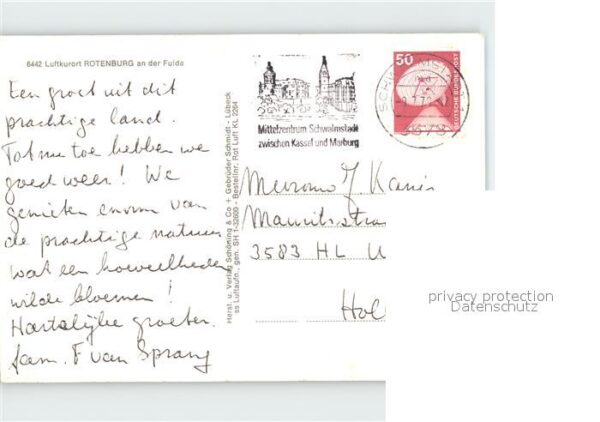 6442 Luftkurort ROTENBURG an der Fulda
Een groet uit dit
prachtige land.
Tot nu toe hebben we
goed weer! We
genieten enorm van
de prachtige natuur
wat een hoeveelheden
wilde bloemen!
Hartelijke groeten.
fam. F van Sprang
Herst. u. Verlag Schöning & Co + Gebrüder Schmidt - Lübeck
ss Luftaufn., gen. SH 1-32600 - Bestellnr. Rot Luft KL 2264
Mittelzentrum Schwalmstadt
zwischen Kassel und Marburg
50
DEUTSCHE BUNDESPOST
Mevrouw J.
3583 HL U
Hol
privacy protection
Datenschutz